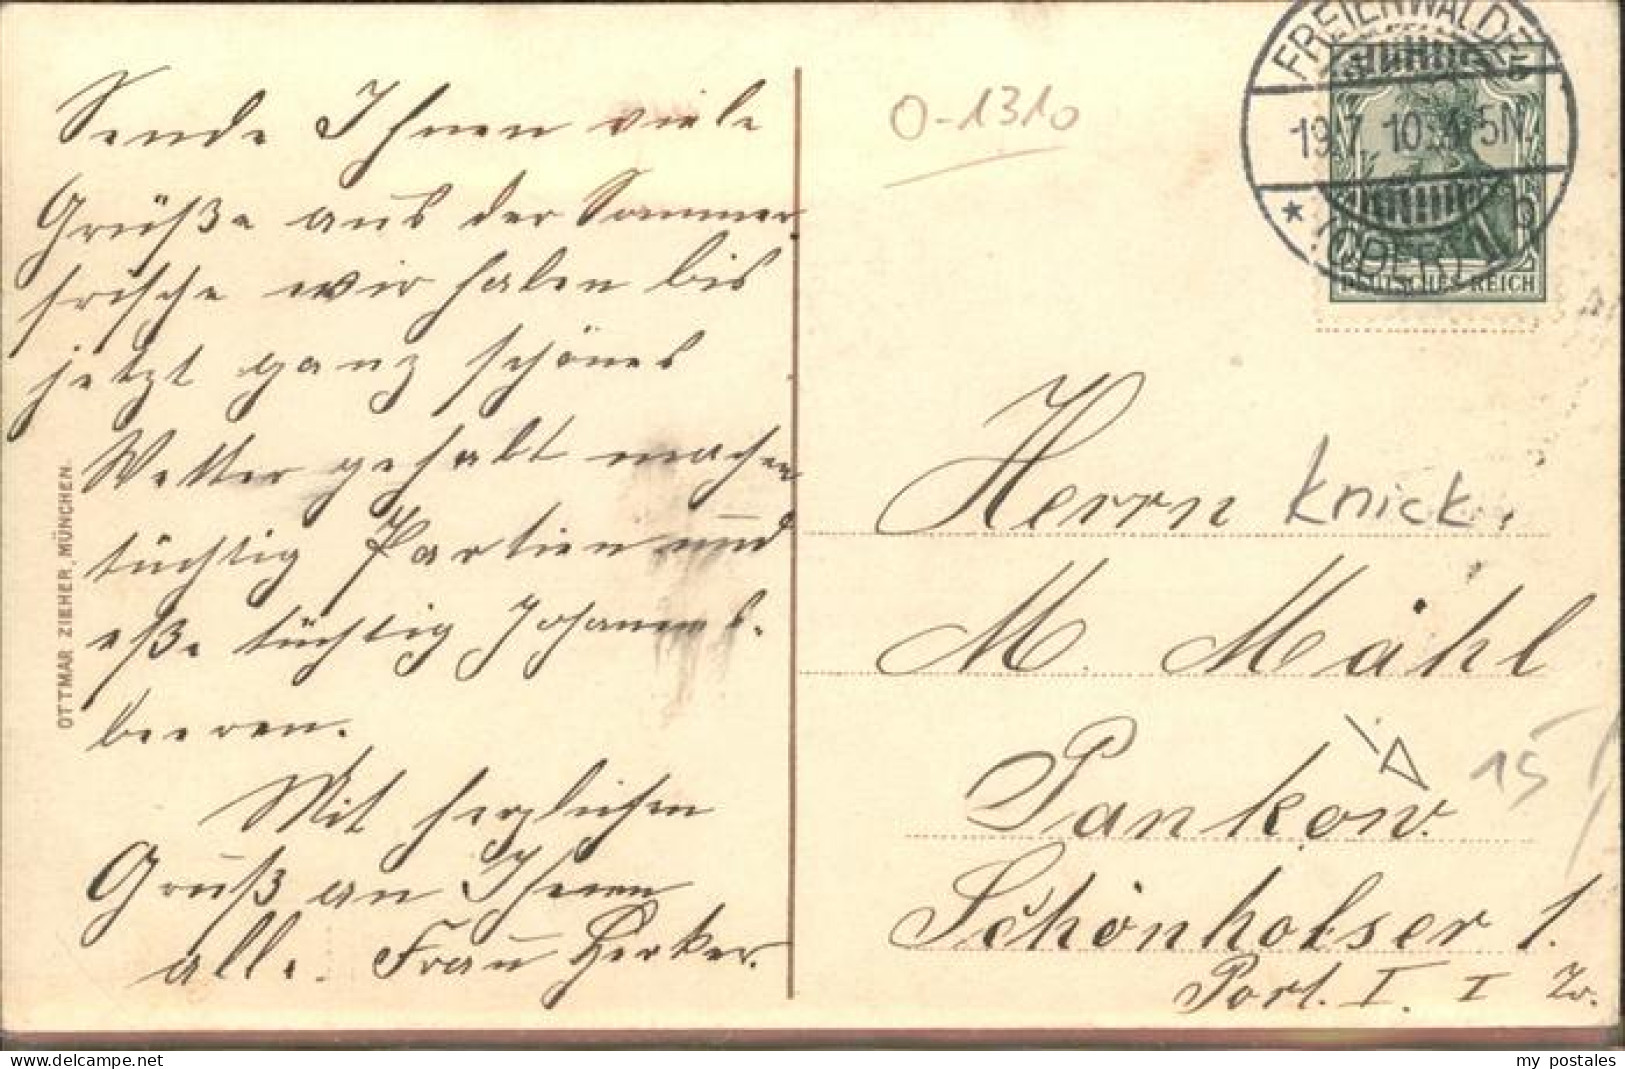 Sende Ihnen viele
Grüße aus der Sommer,
frische wir haben bis
jetzt ganz schönes
Wetter gehabt machen
tüchtig Partien und
eße tüchtig Johannes-
beeren.
Mit herzlichen
Gruß an Ihnen
alle. Frau
OTTMAR ZIEHER, MÜNCHEN.
O-1310
FREIENWALDE
19.7.10. 5N
* (ODER) 1 b
5 5
DEUTSCHES REICH
Herrn Knick
M. Mähl
Pankow.
15
Schönholser 1.
Port. I. I Tr.
my postales